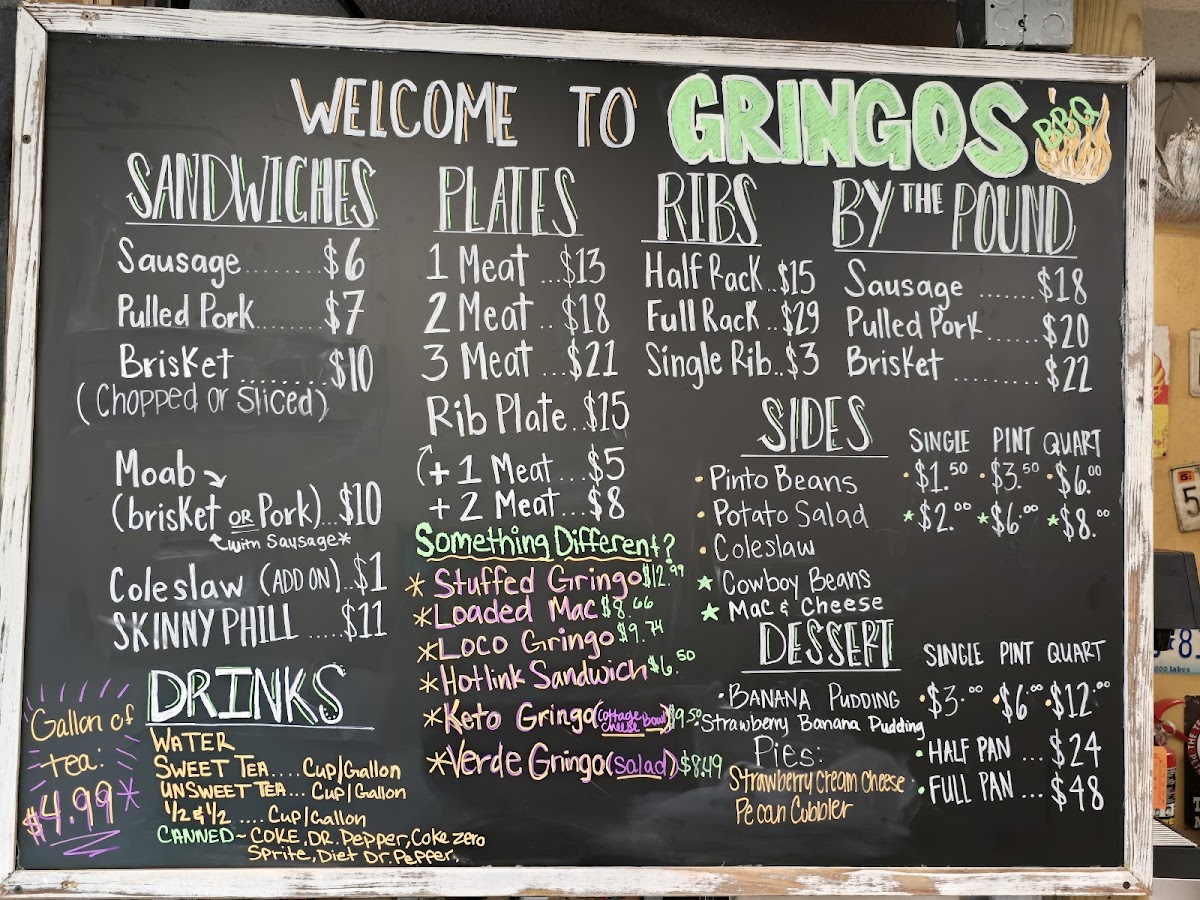 WELCOME TO GRINGOS BBQ
SANDWICHES
Sausage.......$6
Pulled Pork.......$7
Brisket........$10
(Chopped or Sliced)
Moab
(brisket OR Pork)...$10
with Sausage*
Coleslaw (ADD ON)..$1
SKINNY PHILL ....$11
PLATES
1 Meat ...$13
2 Meat ..$18
3 Meat ...$21
Rib Plate...$15
(+ 1 Meat...$5
+ 2 Meat...$8
Something Different?
* Stuffed Gringo $12.99
* Loaded Mac $8.66
* Loco Gringo $9.74
* Hotlink Sandwich $6.50
* Keto Gringo (cottage cheese Bowl) $9.50
* Verde Gringo (salad) $8.49
RIBS
Half Rack..$15
Full Rack..$29
Single Rib..$3
BY THE POUND
Sausage .......$18
Pulled Pork......$20
Brisket .........$22
SIDES SINGLE PINT QUART
• Pinto Beans •$1.50 •$3.50 •$6.00
• Potato Salad *$2.00 *$6.00 *$8.00
• Coleslaw
★ Cowboy Beans
★ Mac & Cheese
DESSERT SINGLE PINT QUART
• BANANA PUDDING •$3.00 •$6.00 •$12.00
Strawberry Banana Pudding
Pies:
Strawberry Cream Cheese
Pecan Cobbler
• HALF PAN ... $24
• FULL PAN ... $48
DRINKS
WATER
SWEET TEA.... Cup/Gallon
UNSWEET TEA... Cup/Gallon
1/2 & 1/2 .... Cup/Gallon
CANNED ~ COKE, DR. Pepper, Coke zero
Sprite, Diet Dr. Pepper,
Gallon of
tea:
$4.99*